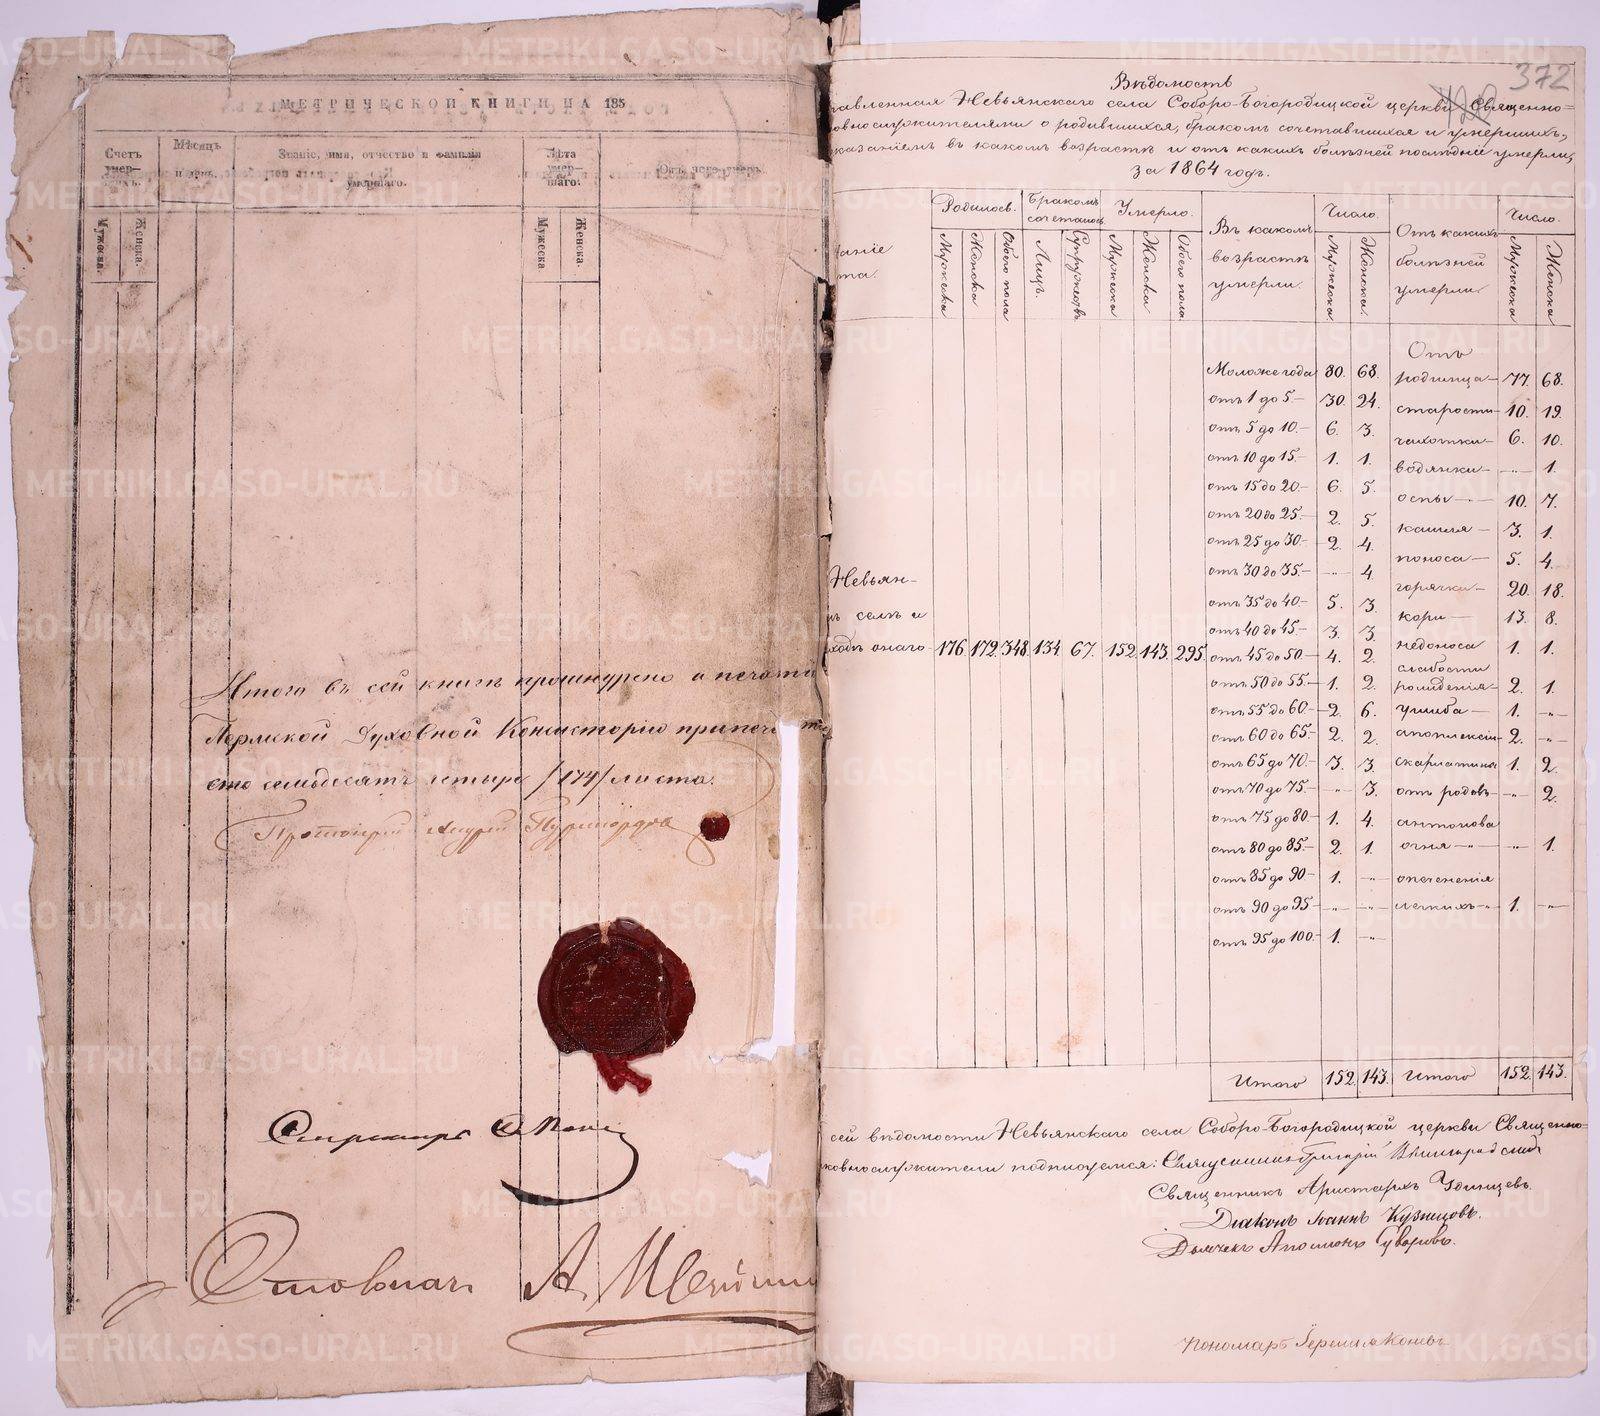 МЕТРИЧЕСКОЙ КНИГИ НА 185
Счетъ умер-шихъ.
Мѣсяцъ и день.
Званіе, имя, отчество и фамилія умершаго.
Лѣта умер-шаго.
Отъ чего умеръ.
Мужеска.
Женска.
Мужеска
Женска.
Итого въ сей книгѣ прошнурено и печатью
Пермской Духовной Консисторіи припеча
сто семьдесятъ четыре /174/ листа.
Протоіерей
Секретарь
Столонач.
372
Вѣдомость
тавленная Невьянскаго села Соборо-Богородицкой церкви Священно=
овнослужителями о родившихся, бракомъ сочетавшихся и умершихъ,
казаніемъ въ какомъ возрастѣ и отъ какихъ болѣзней послѣдніе умерли,
за 1864 годъ.
Родилось. Бракомъ сочеталось Умерло. Въ какомъ возрастѣ умерли. Число. Отъ какихъ болѣзней умерли. Число.
Мужеска Женска Обоего пола Лицъ. Супружествъ Мужеска Женска Обоего пола. Мужеска Женска. Мужеска Женска
Отъ
Моложе года 80. 68. родимца 77. 68.
отъ 1 до 5. 30. 24. старости 10. 19.
отъ 5 до 10. 6. 3. чахотки 6. 10.
отъ 10 до 15. 1. 1. водянки -„- 1.
отъ 15 до 20. 6. 5. оспы 10. 7.
отъ 20 до 25. 2. 5. кашля 3. 1.
отъ 25 до 30 2. 4. поноса 5. 4.
отъ 30 до 35. -„- 4. горячки 20. 18.
отъ 35 до 40. 5. 3. кори 13. 8.
отъ 40 до 45. 3. 3. недоноса 1. 1.
отъ 45 до 50 4. 2. слабости
отъ 50 до 55. 1. 2. рожденія 2. 1.
отъ 55 до 60. 2. 6. ушиба 1. -„-
отъ 60 до 65. 2. 2. апоплексіи 2. -„-
отъ 65 до 70. 3. 3. скарлатина 1. 2.
отъ 70 до 75. -„- 3. отъ родовъ -„- 2.
отъ 75 до 80 1. 4. антонова
отъ 80 до 85. 2. 1. огня -„- 1.
отъ 85 до 90 1. -„-
отъ 90 до 95 -„- -„- легкихъ 1. -„-
отъ 95 до 100. 1. -„-
Невьян-
ъ селѣ и
ходѣ онаго 176 172. 348. 134. 67. 152. 143. 295.
Итого 152. 143. Итого 152. 143.
сей вѣдомости Невьянскаго села Соборо-Богородицкой церкви Священно-
ковнослужители подписуемся: Священникъ Григорій Виноградскій
Священникъ Аристархъ Удинцевъ.
Діаконъ Іоаннъ Кузнецовъ.
Дьячекъ Аполлонъ Суворовъ.
Пономарь
METRIKI.GASO-URAL.RU